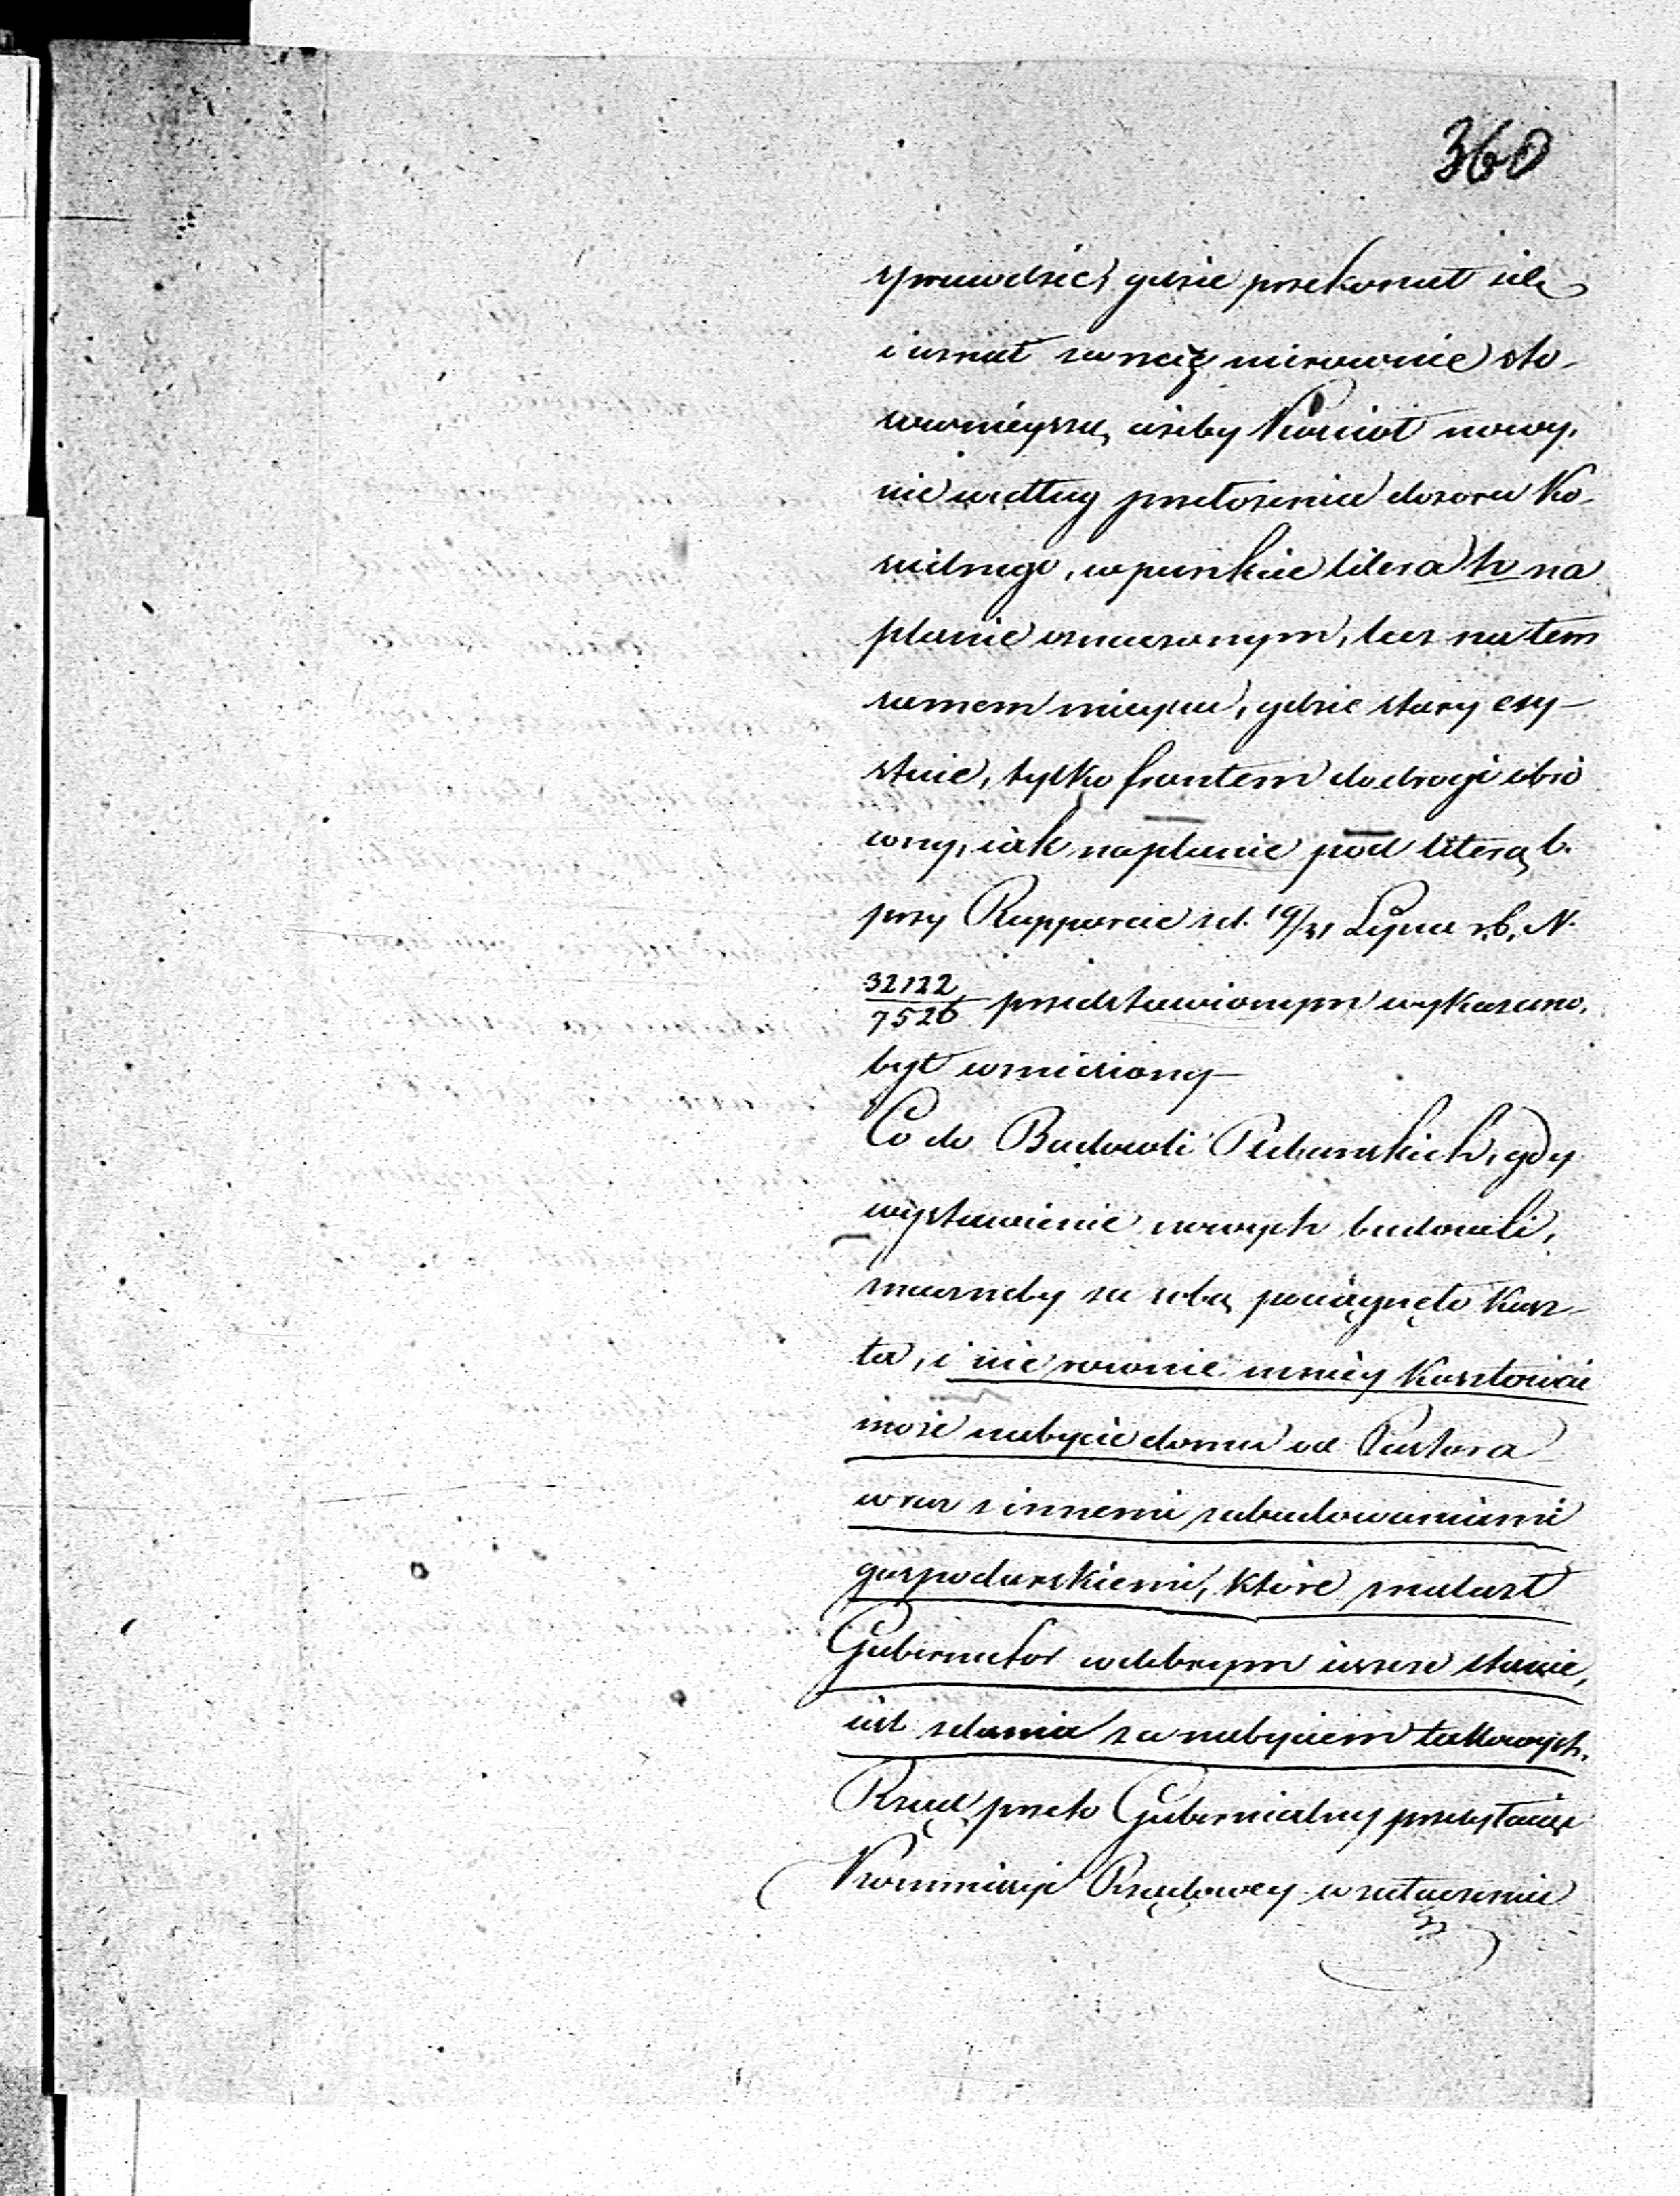 360
sprawdzić, gdzie przekonał się
i uznał za rzecz nierównie sto-
sownieyszą, ażeby Kościoł nowy,
nie według przełożenia dozoru Ko-
scielnego, w punkcie litera h na
planie oznaczonym, lecz na tem
samem mieyscu, gdzie stary exy-
stuie, tylko frontem do drogi obró
cony, iak na planie pod literą b.
przy Rapporcie z d. 19/31 Lipca r.b. N.
32122/7526 przedstawionym wykazano,
był wzniesiony —
Co do Budowli Plebanskich, gdy
wystawienie nowych budowli,
znaczneby za sobą pociągnęło Kosz-
ta, i nie rownie mniey Kosztować
może nabycie domu od Pastora
wraz z innemi zabudowaniami
gospodarskiemi, które znalazł
Gubernator w dobrym ieszcze stanie,
iest zdania za nabyciem takowych.
Rząd przeto Gubernialny przesyłaiąc
Kommissyi Rządowey w załączeniu